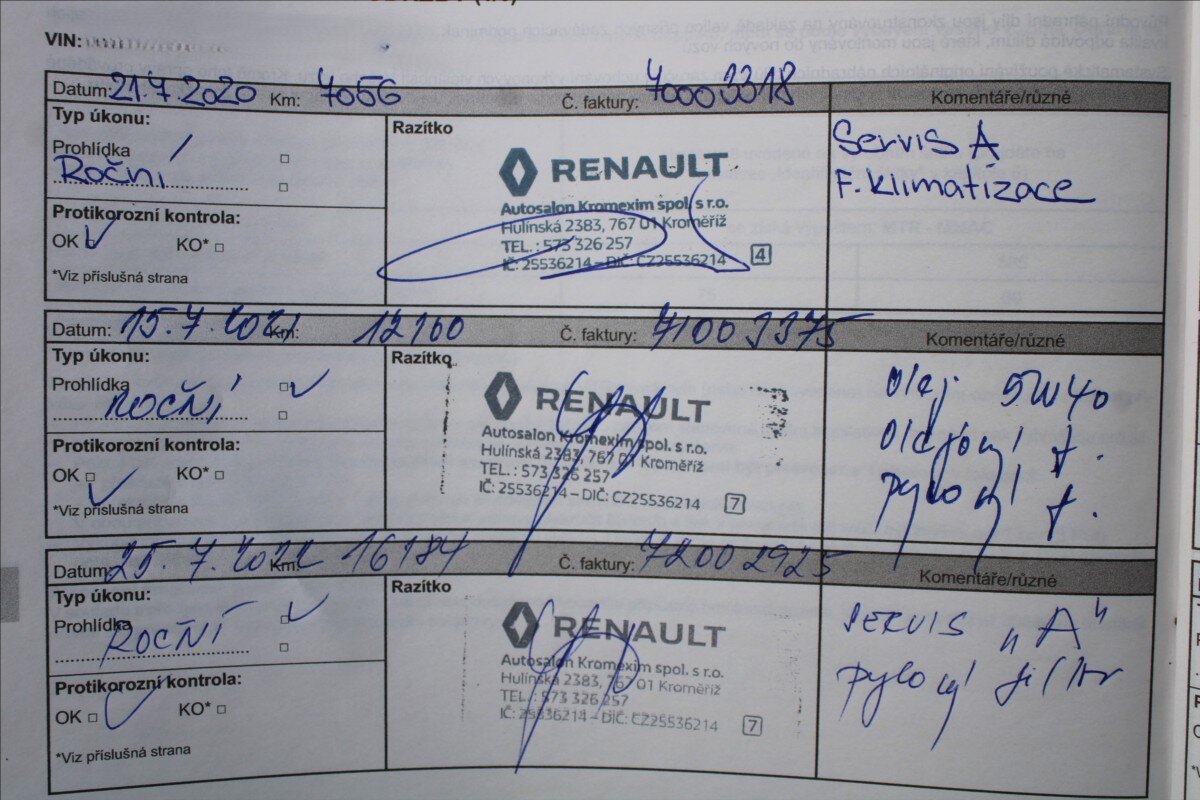 VIN:
Datum: 21.7.2020 Km: 7056 Č. faktury: 70003318 Komentáře/různé
Typ úkonu:
Prohlídka
Roční
Protikorozní kontrola:
OK KO*
*Viz příslušná strana
Razítko
RENAULT
Autosalon Kromexim spol. s r.o.
Hulínská 2383, 767 01 Kroměříž
TEL.: 573 326 257
IČ: 25536214 – DIČ: CZ25536214 4
Servis A
F. klimatizace
Datum: 15.7.2021 Km: 12160 Č. faktury: 71003375 Komentáře/různé
Typ úkonu:
Prohlídka
ROČNÍ
Protikorozní kontrola:
OK KO*
*Viz příslušná strana
Razítko
RENAULT
Autosalon Kromexim spol. s r.o.
Hulínská 2383, 767 01 Kroměříž
TEL.: 573 326 257
IČ: 25536214 – DIČ: CZ25536214 7
Olej 5W40
Olejový f.
pylový f.
Datum: 25.7.2022 Km: 16184 Č. faktury: 72002925 Komentáře/různé
Typ úkonu:
Prohlídka
ROČNÍ
Protikorozní kontrola:
OK KO*
*Viz příslušná strana
Razítko
RENAULT
Autosalon Kromexim spol. s r.o.
Hulínská 2383, 767 01 Kroměříž
TEL.: 573 326 257
IČ: 25536214 – DIČ: CZ25536214 7
SERVIS „A“
pylový filtr